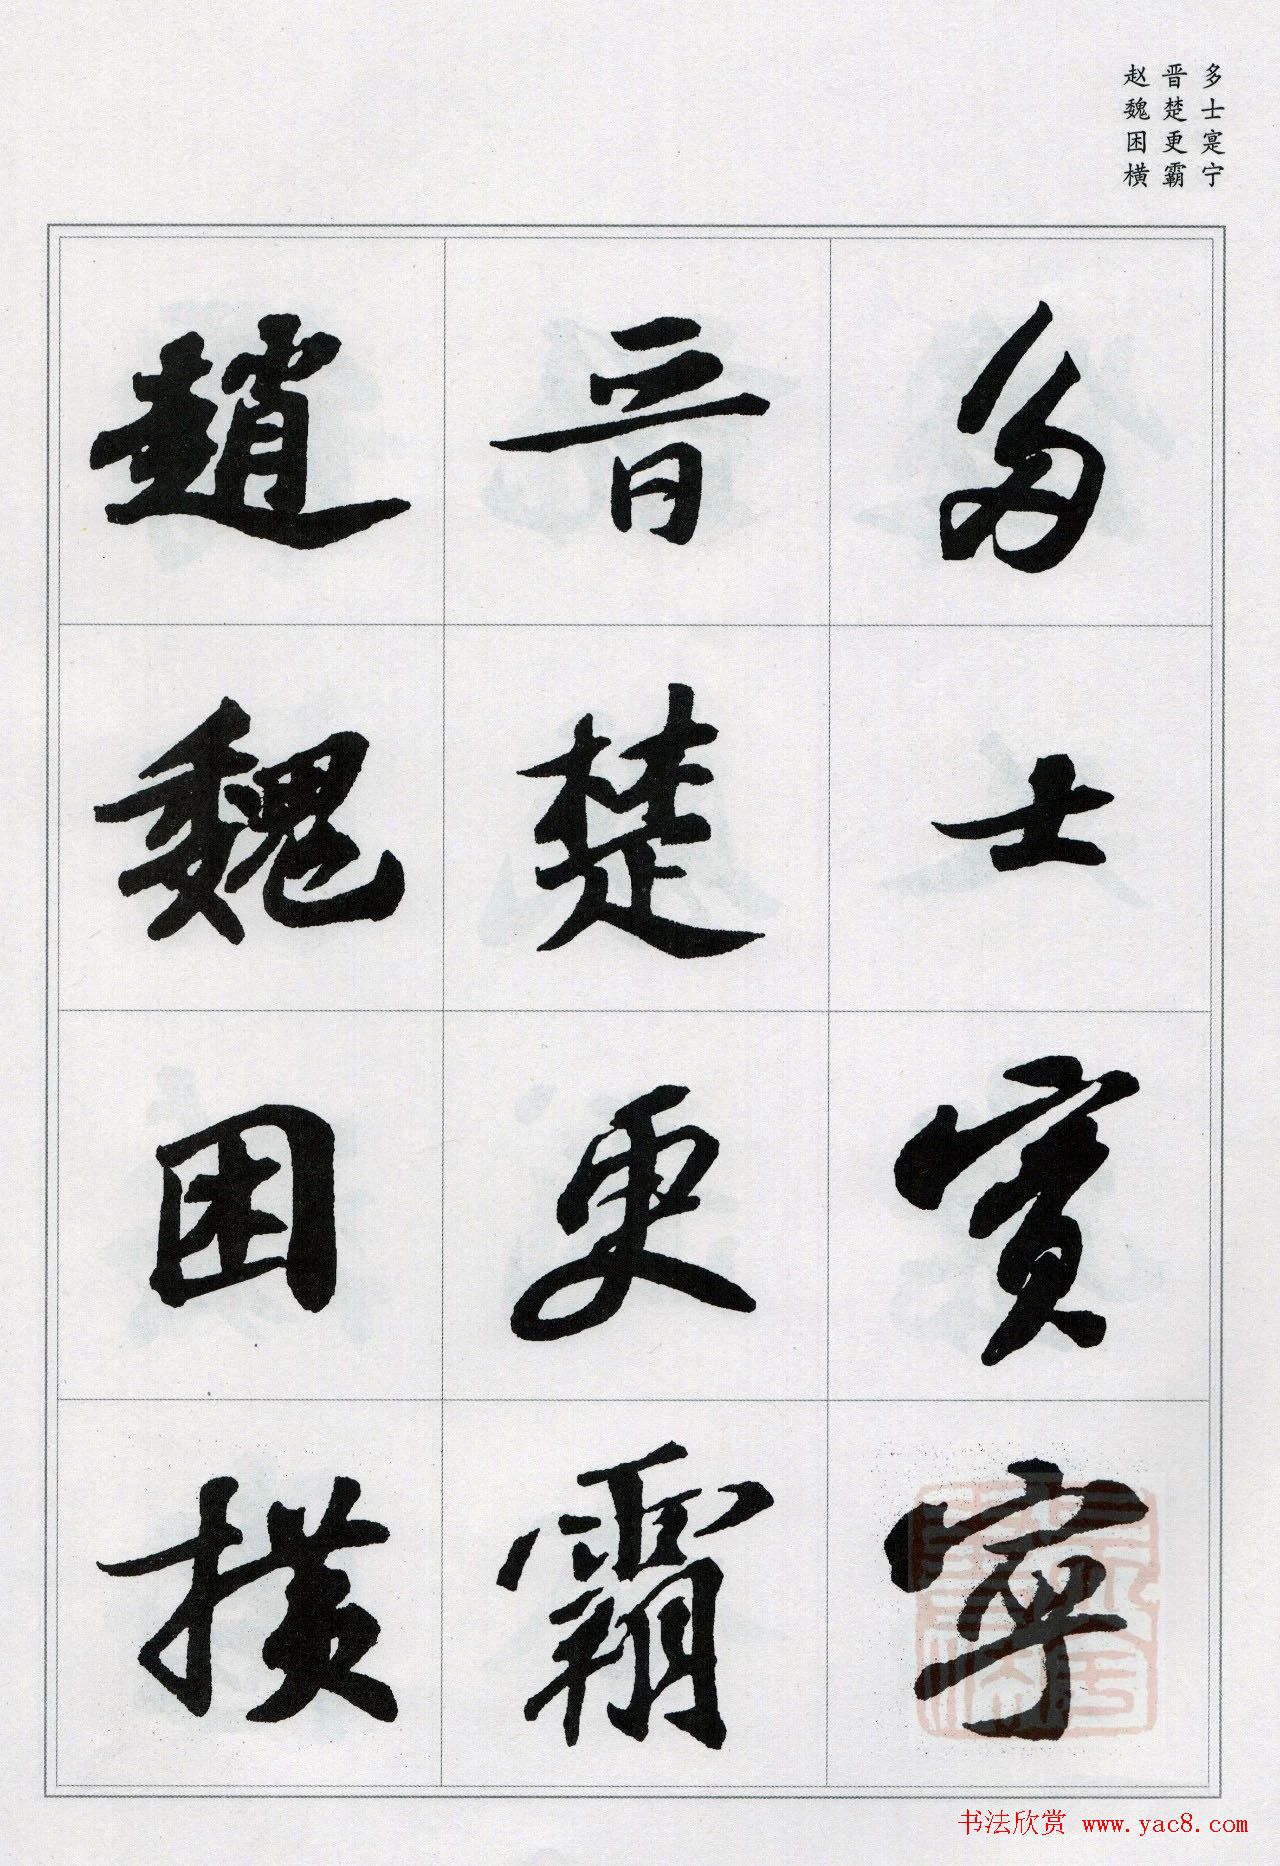 多士寔宁
晋楚更霸
赵魏困横
多士寔寧
晉楚更霸
趙魏困横
书法欣赏 www.yac8.com